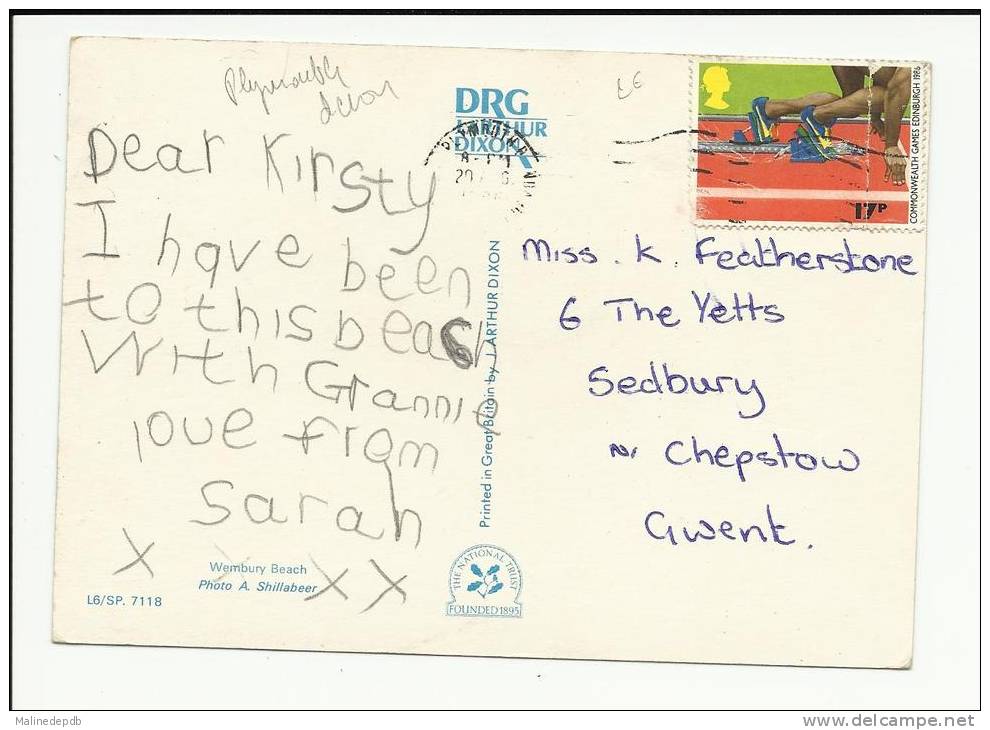 Plymouth
devon
DRG
J. ARTHUR
DIXON
COMMONWEALTH GAMES EDINBURGH 1986
17P
Dear Kirsty
I have been
to this beach
with Grannie
love from
Sarah
X X X
Miss. K. Featherstone
6 The Yetts
Sedbury
Nr Chepstow
Gwent.
Printed in Great Britain by J. ARTHUR DIXON
Wembury Beach
Photo A. Shillabeer
L6/SP. 7118
THE NATIONAL TRUST
FOUNDED 1895
Malinedepdb
www.delcampe.net